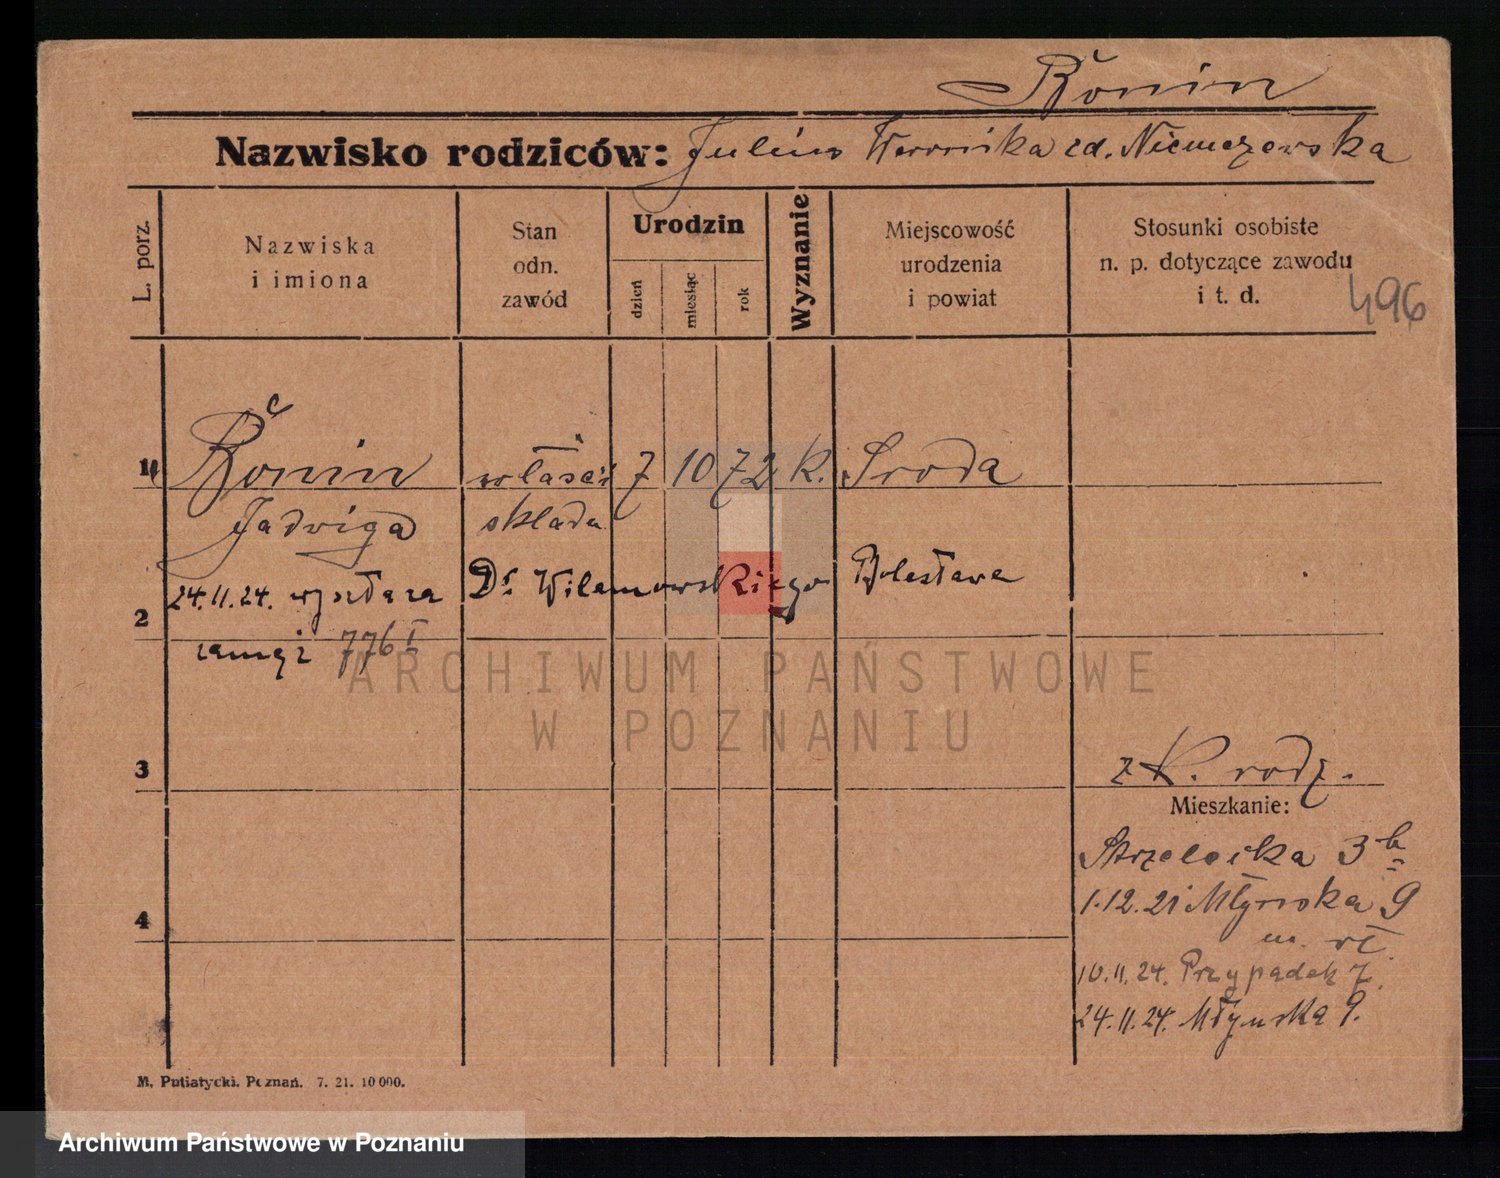 Bŏnin
Nazwisko rodziców: Juliusz Weronika zd. Niemczewska
L. porz.
Nazwiska
i imiona
Stan
odn.
zawód
Urodzin
dzień
miesiąc
rok
Wyznanie
Miejscowość
urodzenia
i powiat
Stosunki osobiste
n. p. dotyczące zawodu
i t. d.
496
1 Bŏnin właści 7 10 72 k. Środa
Jadwiga składu
24.11.24. wyszła za Dr. Wilamowskiego Bolesława
2
zamąż 776 I
3 z k. rodz.
Mieszkanie:
Strzelecka 3 b
1.12.21 Młyńska 9
4
10.11.24. Przypadek 7.
24.11.24. Młyńska 9.
M. Putiatycki. Poznań. 7. 21. 10 000.
ARCHIWUM PAŃSTWOWE
W POZNANIU
Archiwum Państwowe w Poznaniu